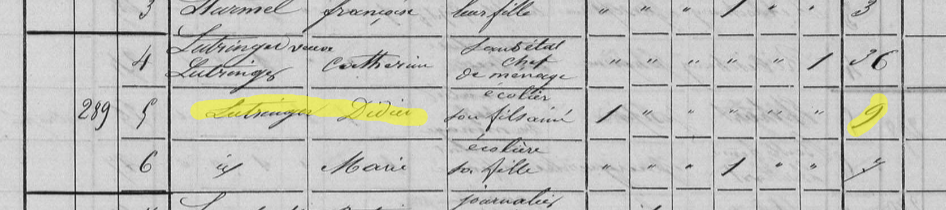 3 Harmel françoise leur fille " " " 1 " " 3
4 Lutringer veuve Lutringer Catherine sans état chef de ménage " " " " " 1 36
289 5 Lutringer Didier écolier son fils ainé 1 " " " " " 9
6 id Marie écolière sa fille " " " 1 " "
journalier